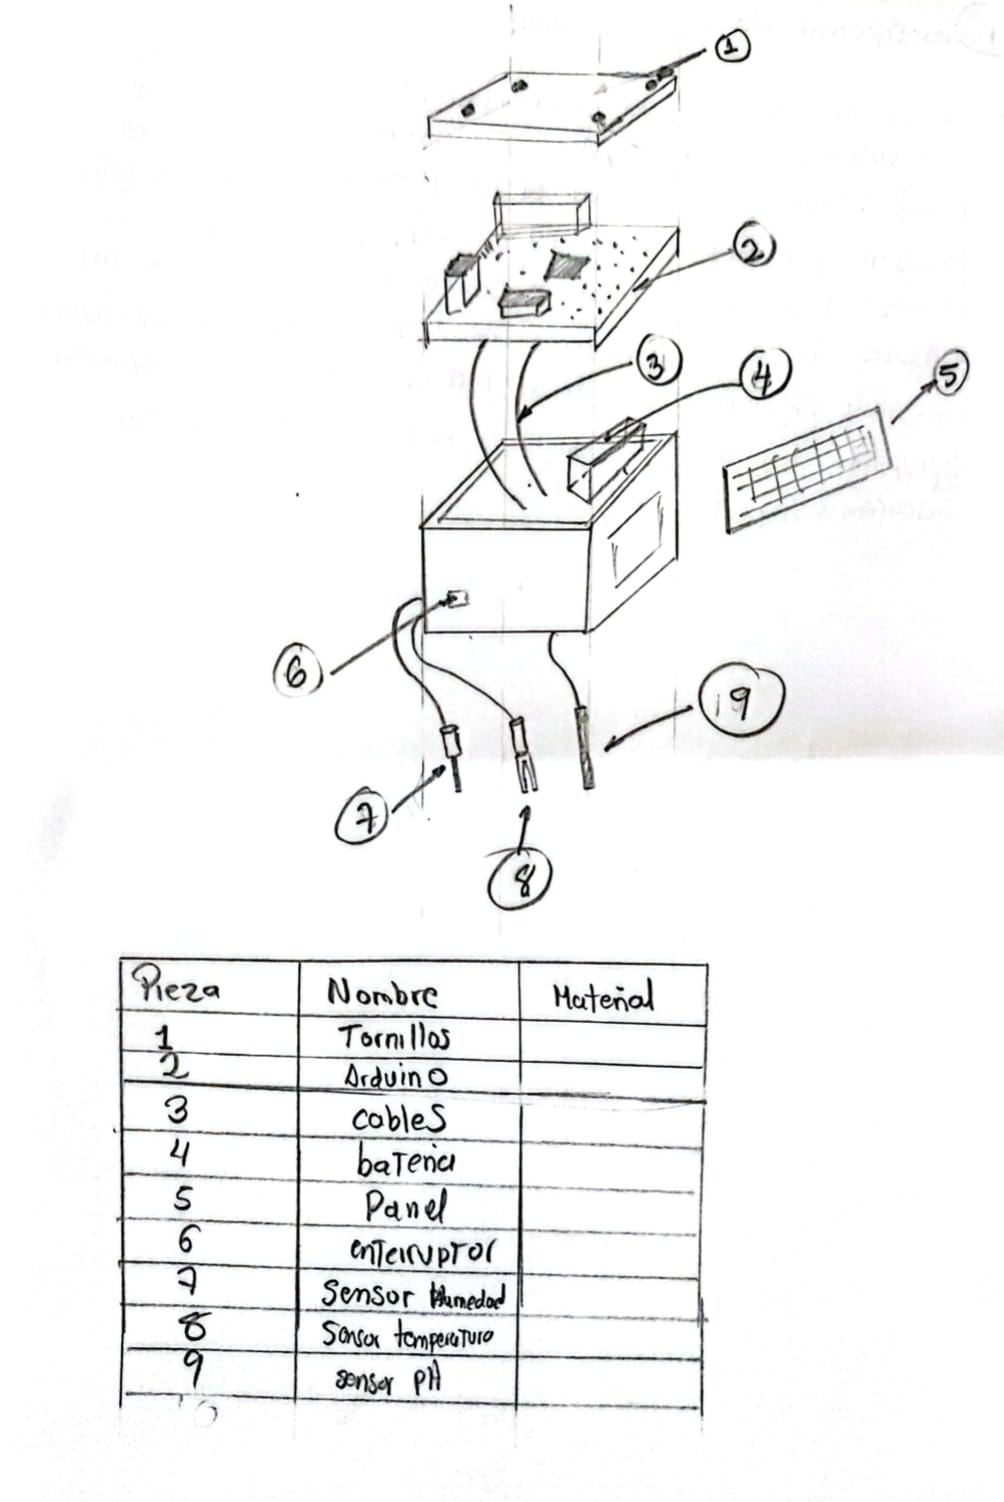 1
2
3
4
5
6
19
7
8
Pieza Nombre Material
1 Tornillos
2 Arduino
3 cables
4 bateria
5 Panel
6 enterruptor
7 Sensor Humedad
8 Sensor temperatura
9 sensor pH